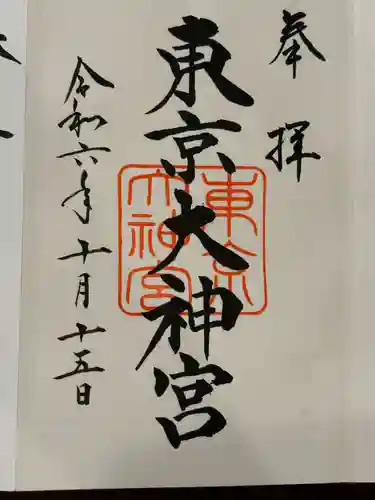 奉拝
東京大神宮
東京大神宮
令和六年十月十五日